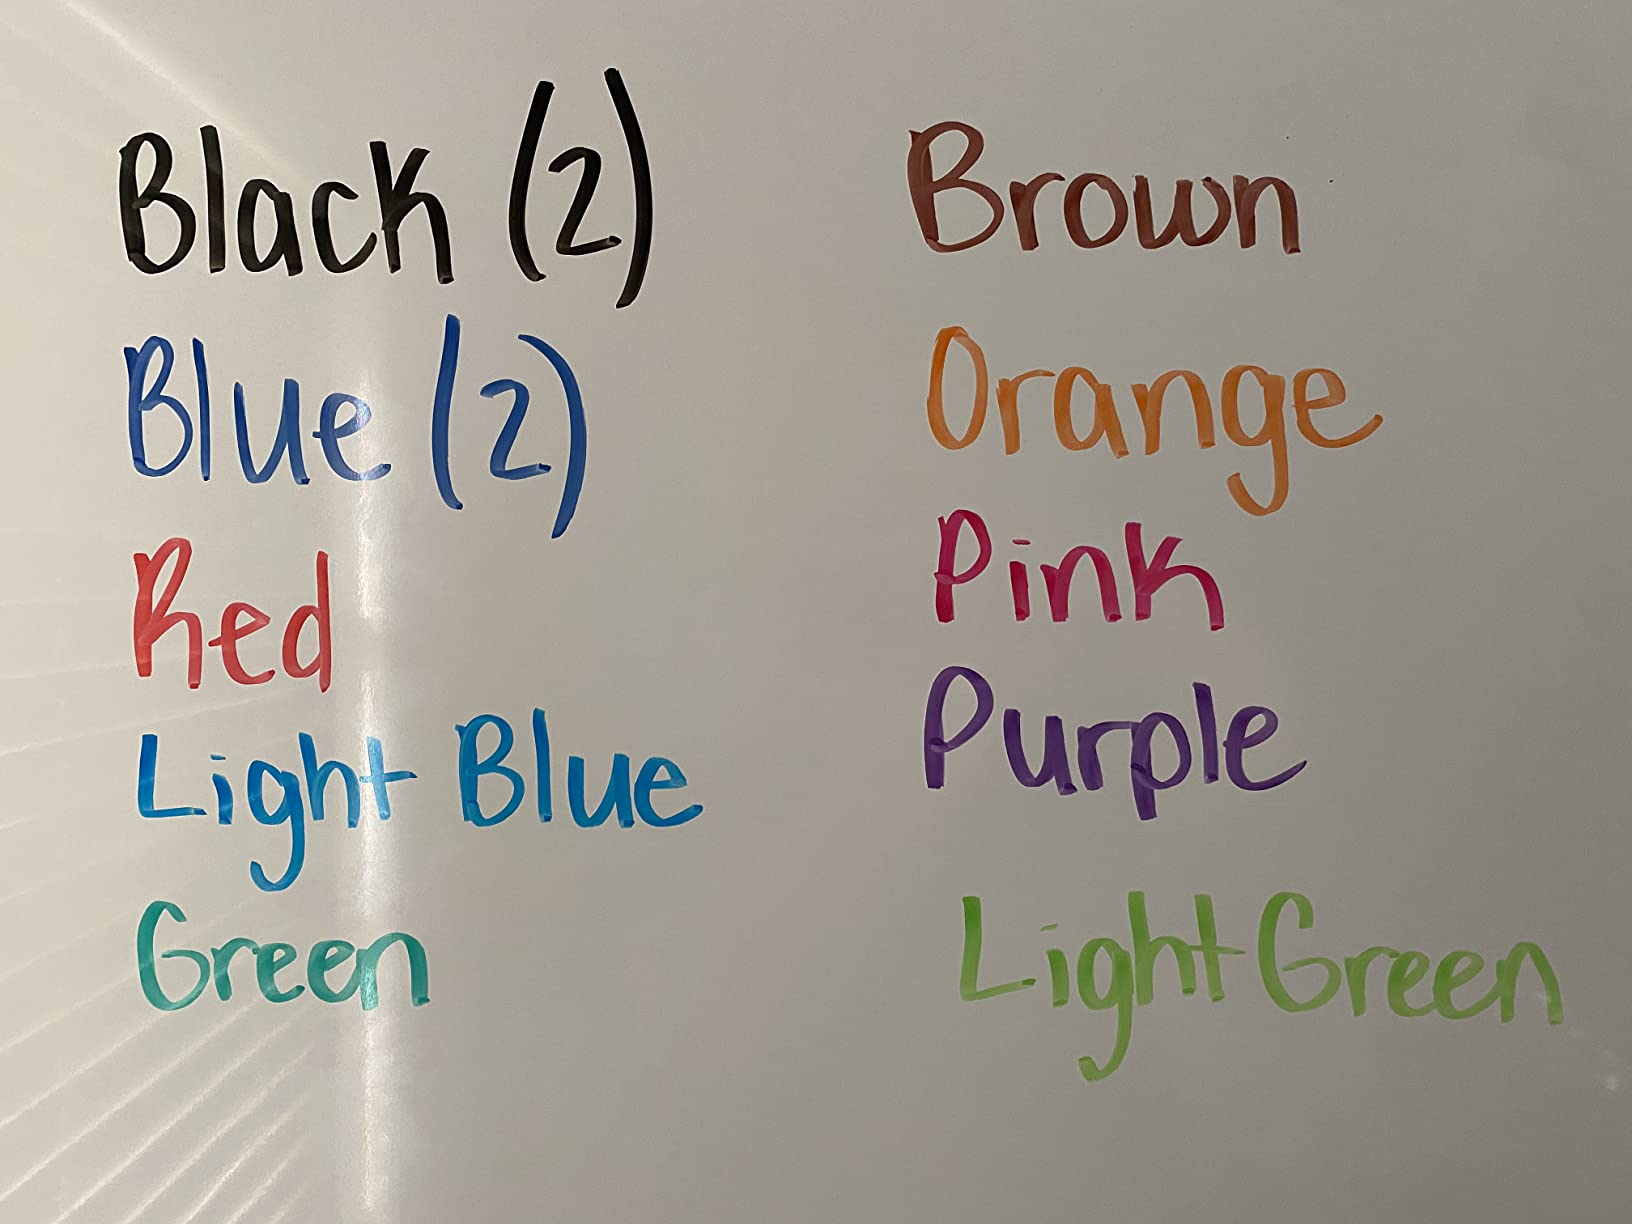 Black (2)
Blue (2)
Red
Light Blue
Green
Brown
Orange
Pink
Purple
Light Green